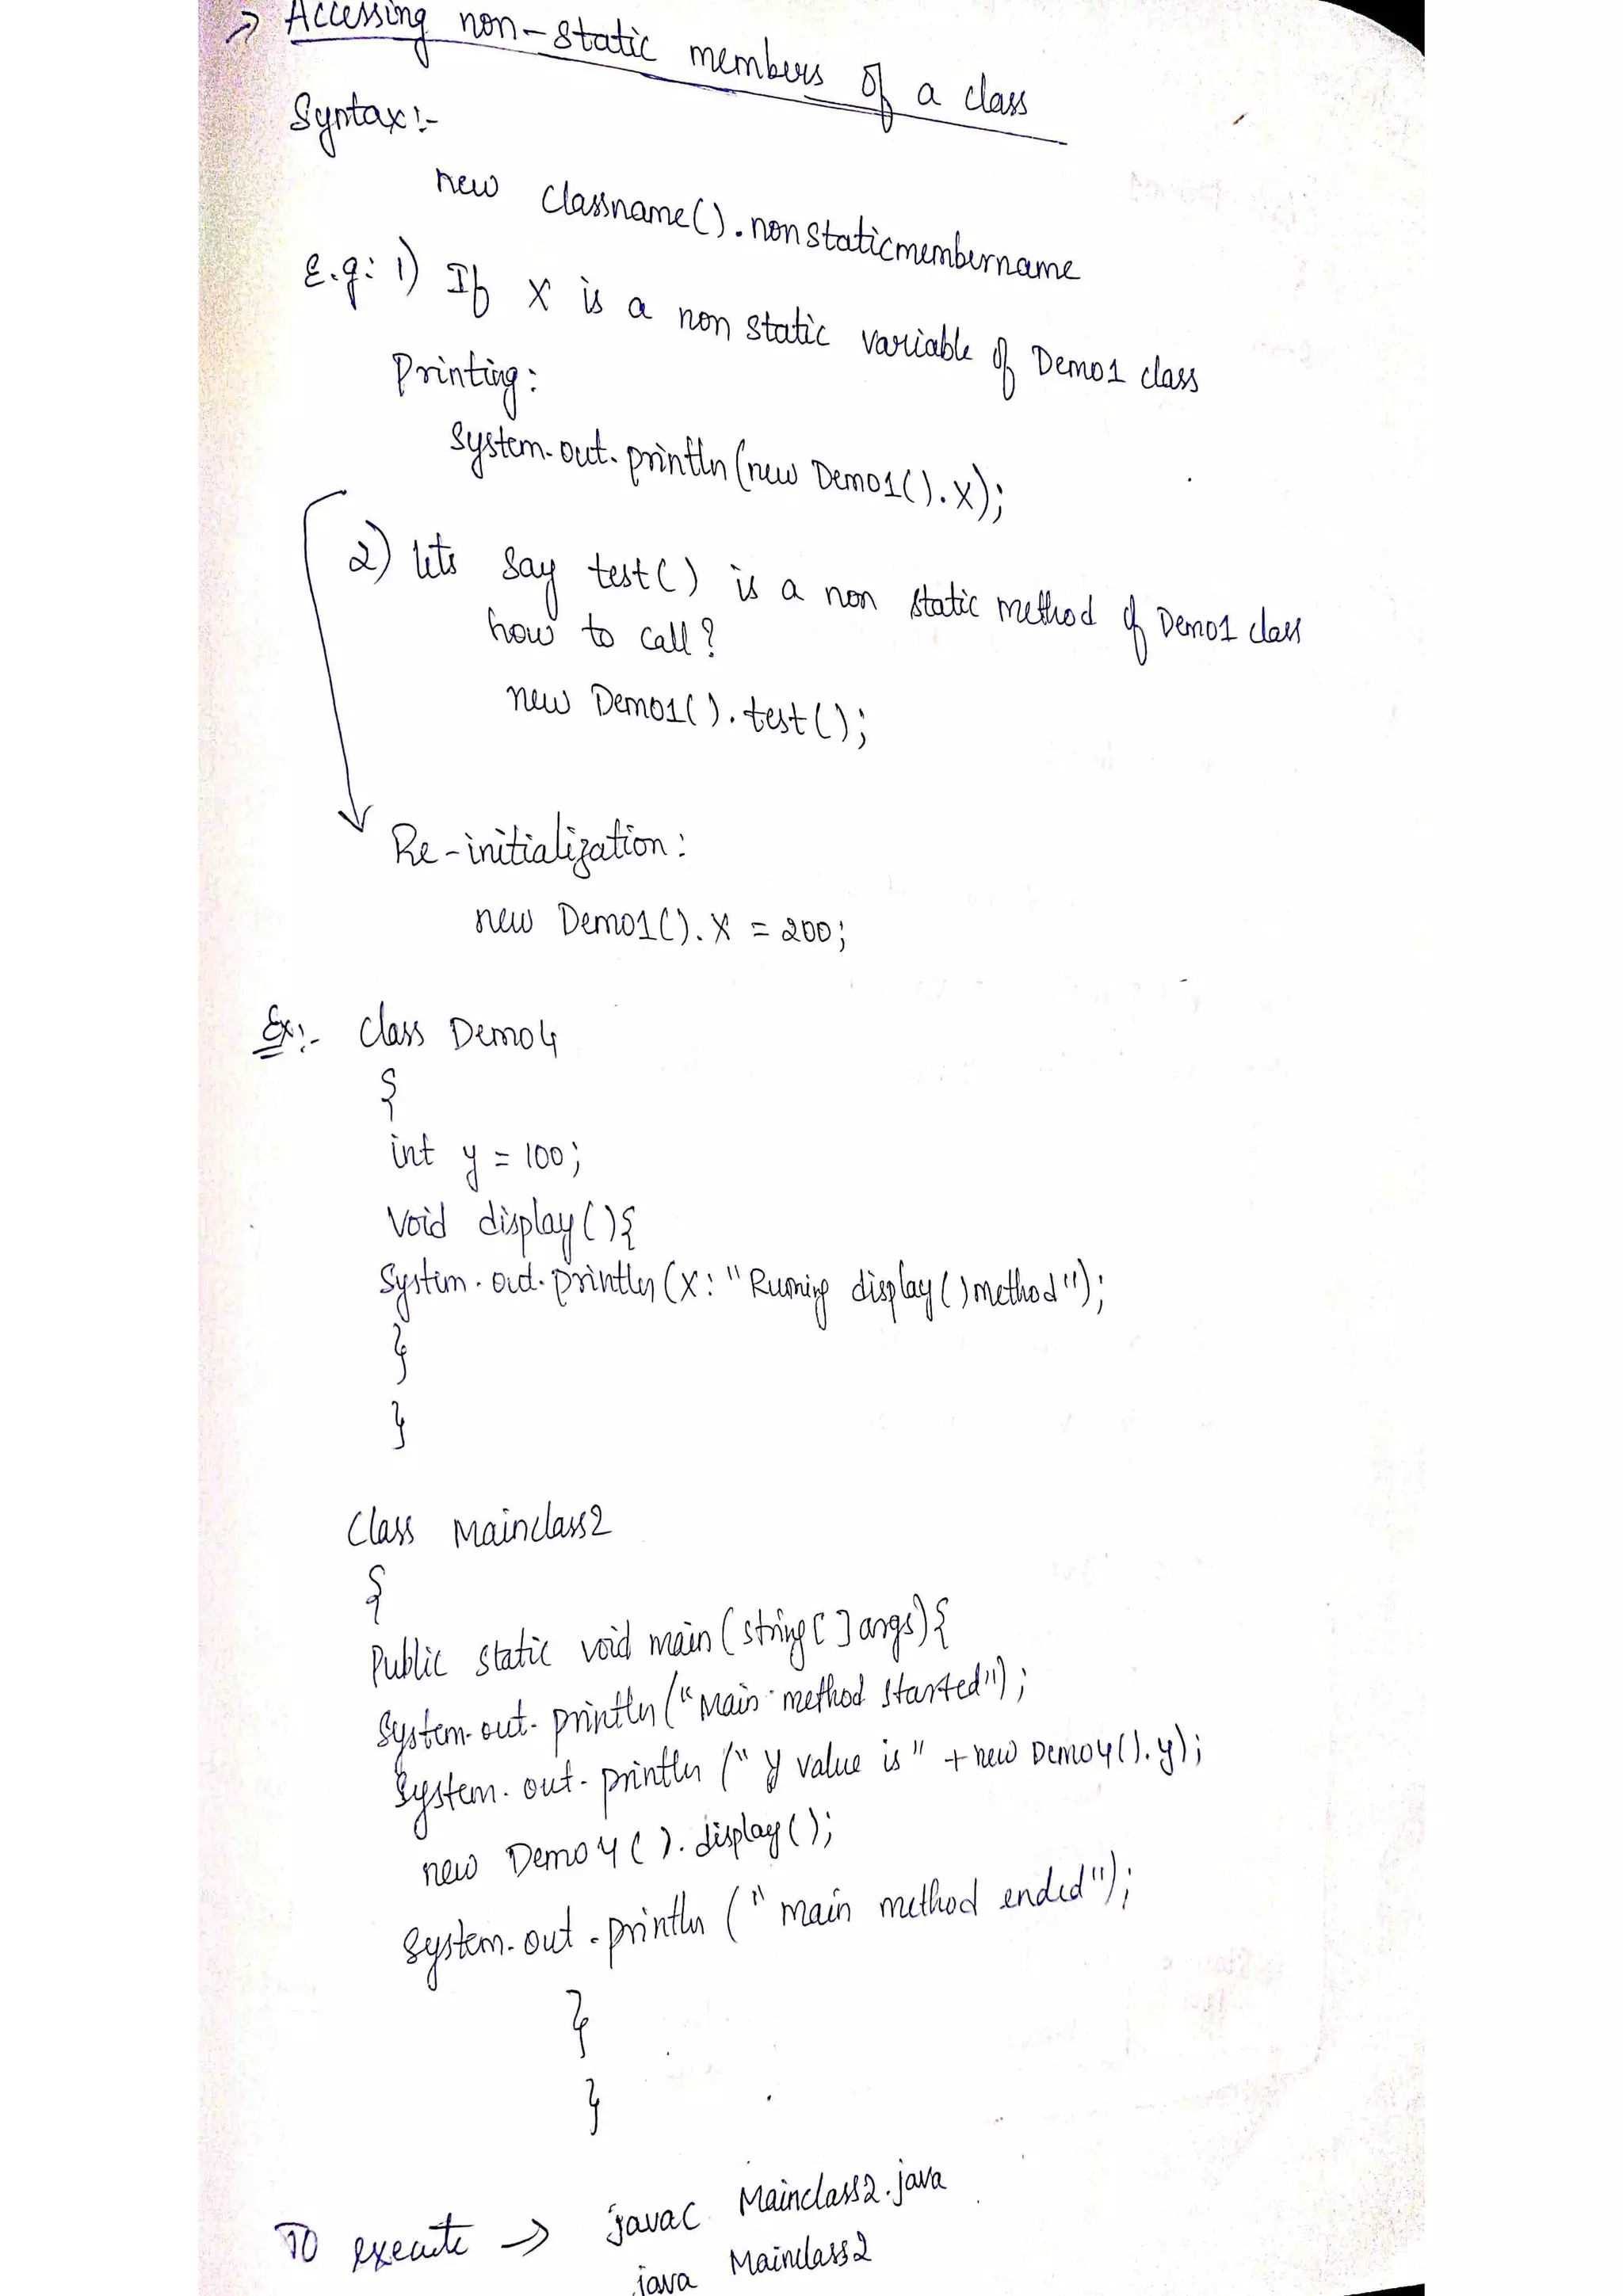 → Accessing non-static members of a class
Syntax:-
new classname().nonstaticmembername
E.g: 1) If x is a non static variable of Demo1 class
Printing:
System.out.println(new Demo1().x);
2) lets say test() is a non static method of Demo1 class
how to call?
new Demo1().test();
Re-initialization:
new Demo1().x = 200;
Ex:- Class Demo4
{
int y = 100;
void display(){
System.out.println(x: "Running display() method");
}
}
Class Mainclass2
{
Public static void main(string[] args){
System.out.println("Main method started");
System.out.println("y value is" + new Demo4().y);
new Demo4().display();
System.out.println("main method ended");
}
}
To execute → javac Mainclass2.java
java Mainclass2